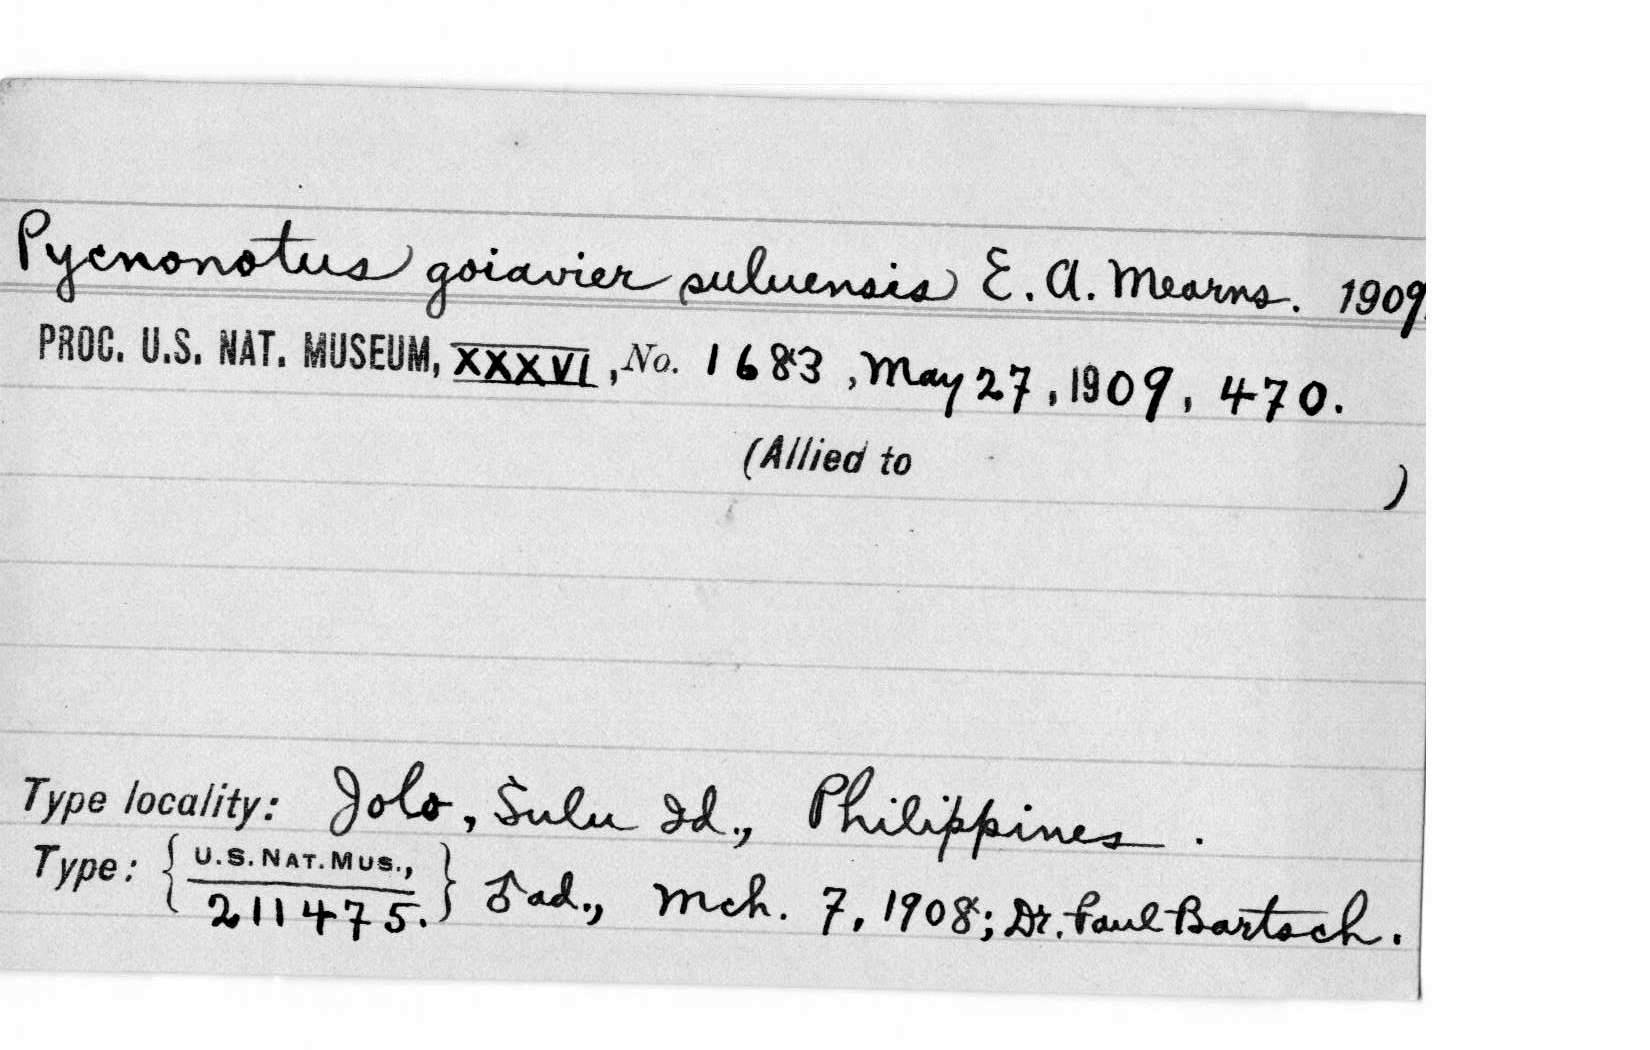 Pycnonotus goiavier suluensis E. A. Mearns. 1909.
PROC. U.S. NAT. MUSEUM, XXXVI, No. 1683, May 27, 1909, 470.
(Allied to )
Type locality: Jolo, Sulu Id., Philippines.
Type: { U.S. NAT. MUS.,
211475. } ♂ ad., Mch. 7, 1908; Dr. Paul Bartsch.